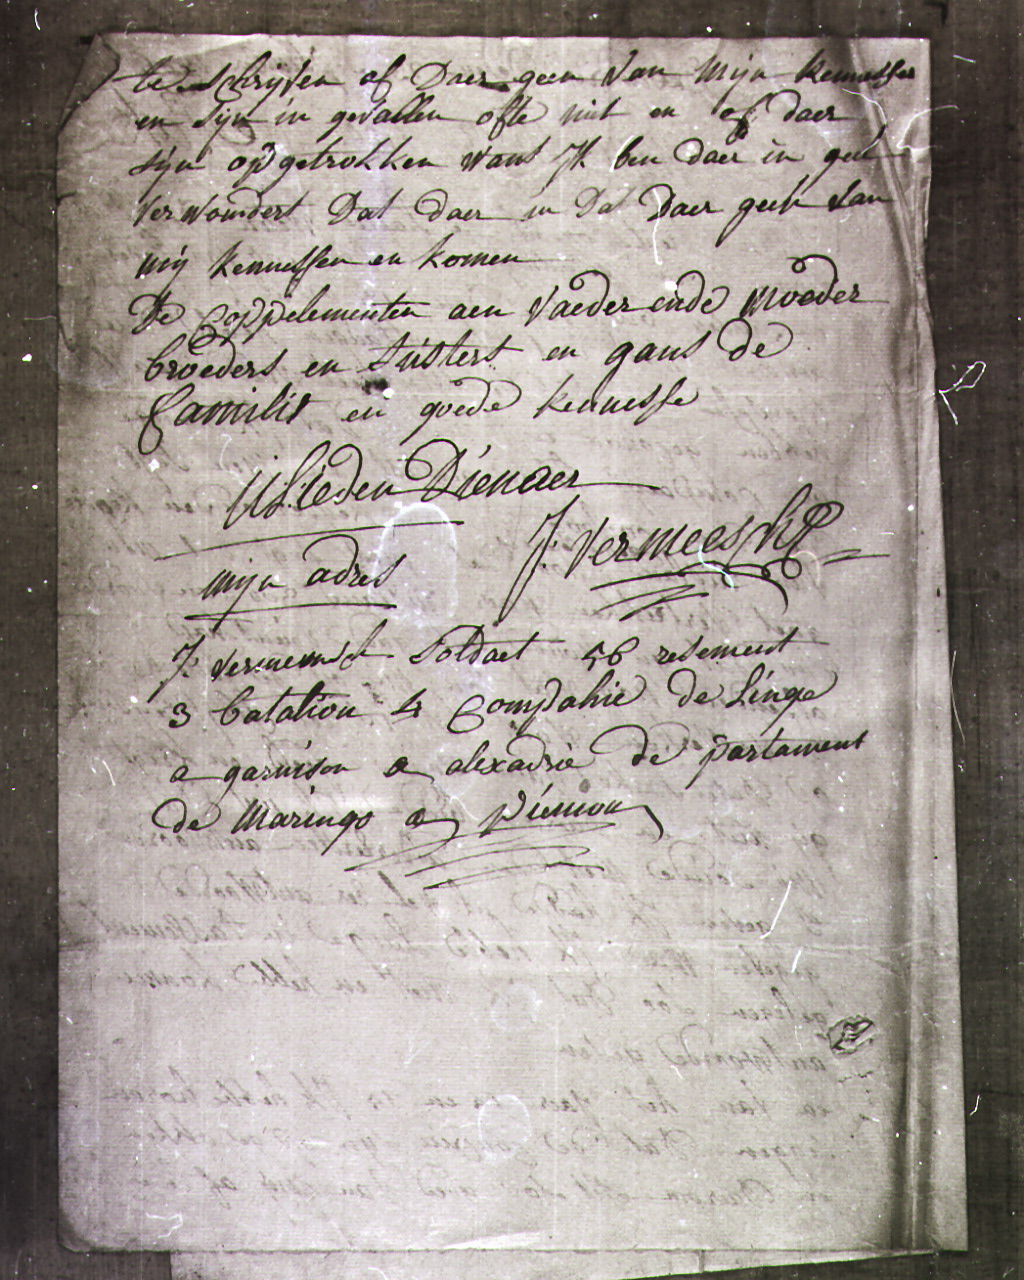 te schrijven of daer geen van mijn kennessen
en sijn in gevallen ofte niet en of daer
sijn opgetrokken want Jk ben daer in geel
verwondert dat daer in dat daer geen van
mij kennessen en komen
De Coppelementen aen vaeder ende moeder
broeders en susters en gans de
familie en goede kennesse
Ulieden Dienaer
J: vermeesch
mijn adres
J: vermeersch soldaet 56 resement
3 batalion 4 Compahie de Linge
a garnison a alexadrie de partament
de Maringo a Piemon